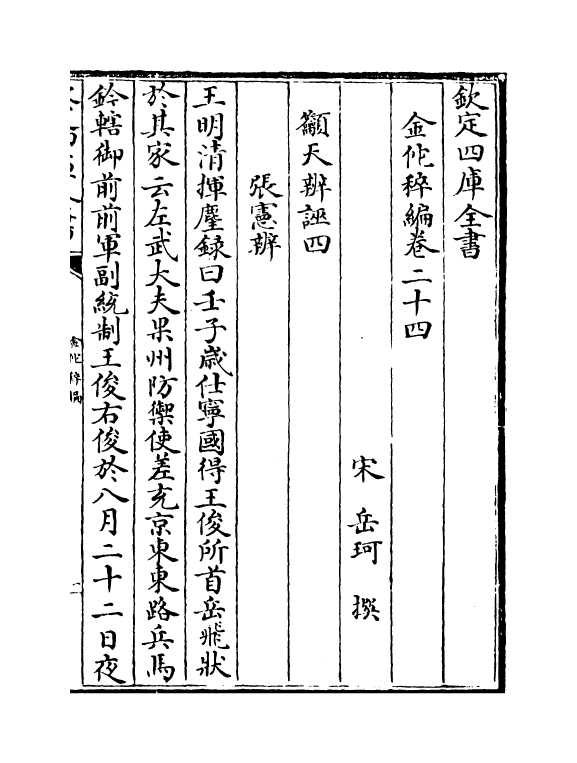 欽定四庫全書
金佗稡編卷二十四
宋 岳珂 撰
籲天辨誣四
張憲辨
王明清揮麈録曰壬子歳仕寧國得王俊所首岳飛狀
於其家云左武大夫果州防禦使差充京東東路兵馬
鈐轄御前前軍副統制王俊右俊於八月二十二日夜